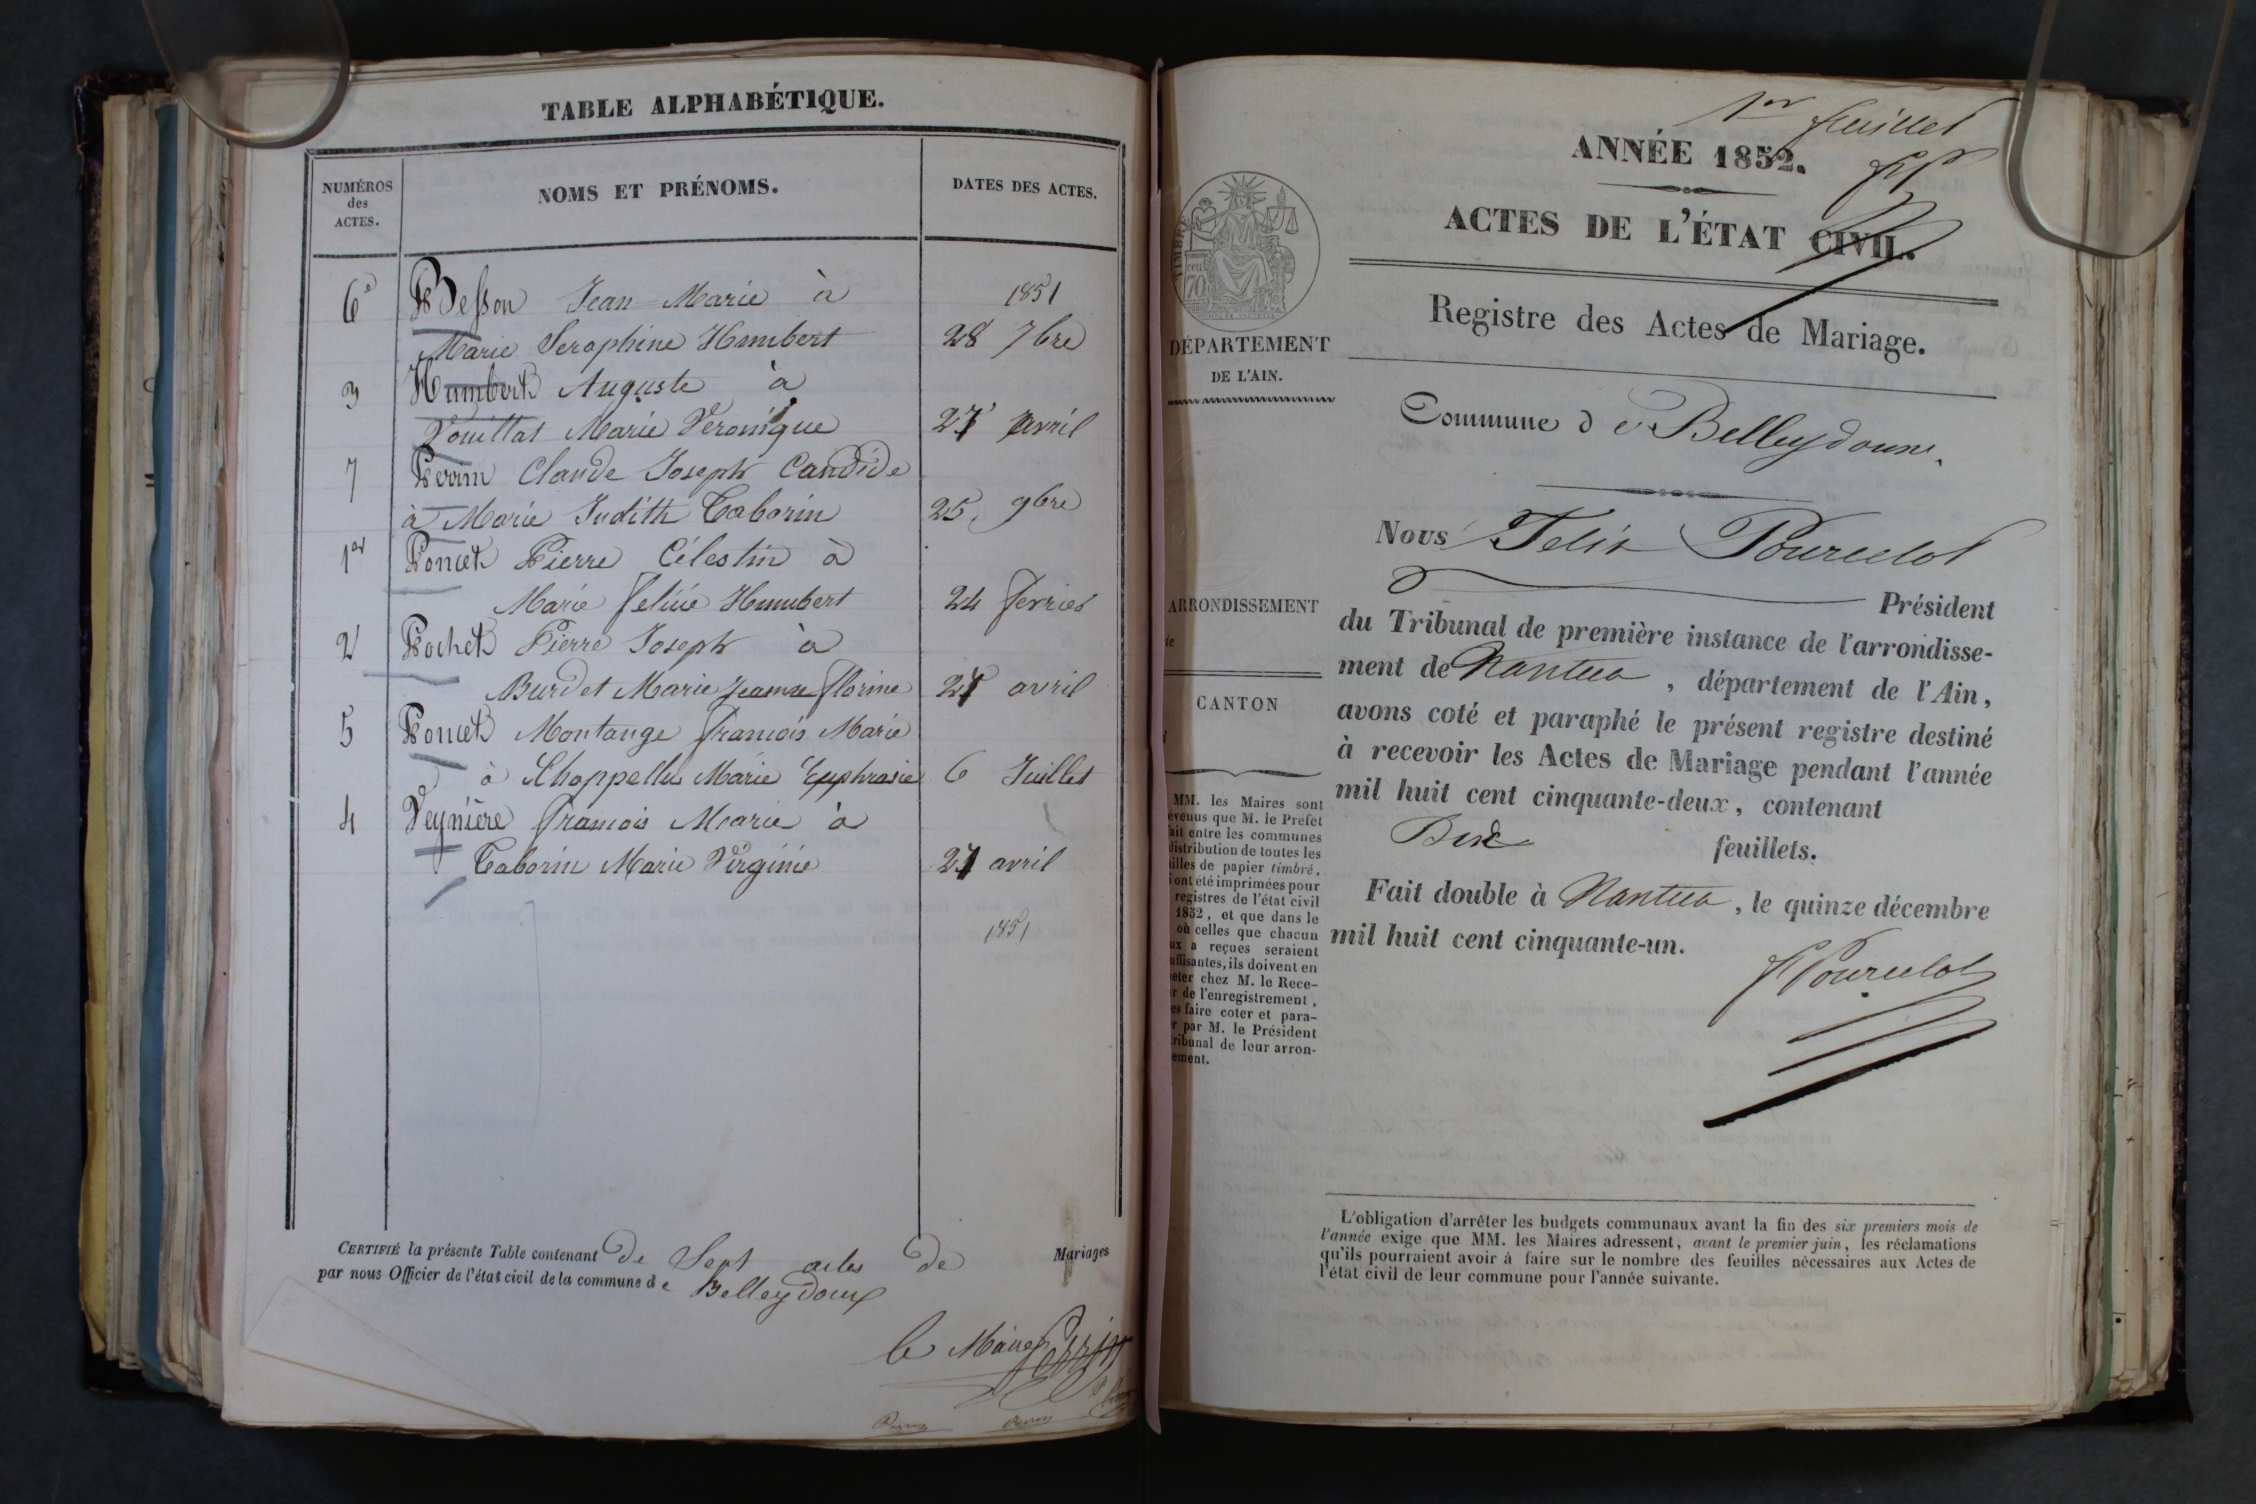 TABLE ALPHABÉTIQUE.
NUMÉROS des ACTES.
NOMS ET PRÉNOMS.
DATES DES ACTES.
6e Besson Jean Marie à 1851
Marie Seraphine Humbert 28 7bre
3 Humbert Auguste à
Vouillat Marie Veronique 27 avril
7 Perrin Claude Joseph Candide
à Marie Judith Taborin 25 9bre
1er Poncet Pierre Célestin à
Marie félicie Humbert 24 fevrier
2 Pochet Pierre Joseph à
Burdet Marie Jeanne florine 27 avril
5 Poncet Montange françois Marie
à Chappellu Marie Euphrasie 6 Juillet
4 Veynière françois Marie à
Taborin Marie Virginie 27 avril
1851
CERTIFIÉ la présente Table contenant de Sept actes de Mariages
par nous Officier de l'état civil de la commune de Belleydoux
le Maire Perrin
1er feuillet
ANNÉE 1852.
ACTES DE L'ÉTAT CIVIL.
Registre des Actes de Mariage.
TIMBRE
70
DÉPARTEMENT
DE L'AIN.
ARRONDISSEMENT
CANTON
MM. les Maires sont
que M. le Préfet
entre les communes
distribution de toutes les
de papier timbré,
ont été imprimées pour
registres de l'état civil
1852, et que dans le
où celles que chacun
a reçues seraient
ils doivent en
chez M. le Rece-
de l'enregistrement,
faire coter et para-
par M. le Président
tribunal de leur arron-
Commune de Belleydoux.
Nous Felix Pourcelot
Président
du Tribunal de première instance de l'arrondisse-
ment de Nantua, département de l'Ain,
avons coté et paraphé le présent registre destiné
à recevoir les Actes de Mariage pendant l'année
mil huit cent cinquante-deux, contenant
feuillets.
Fait double à Nantua, le quinze décembre
mil huit cent cinquante-un.
F Pourcelot
L'obligation d'arrêter les budgets communaux avant la fin des six premiers mois de
l'année exige que MM. les Maires adressent, avant le premier juin, les réclamations
qu'ils pourraient avoir à faire sur le nombre des feuilles nécessaires aux Actes de
l'état civil de leur commune pour l'année suivante.